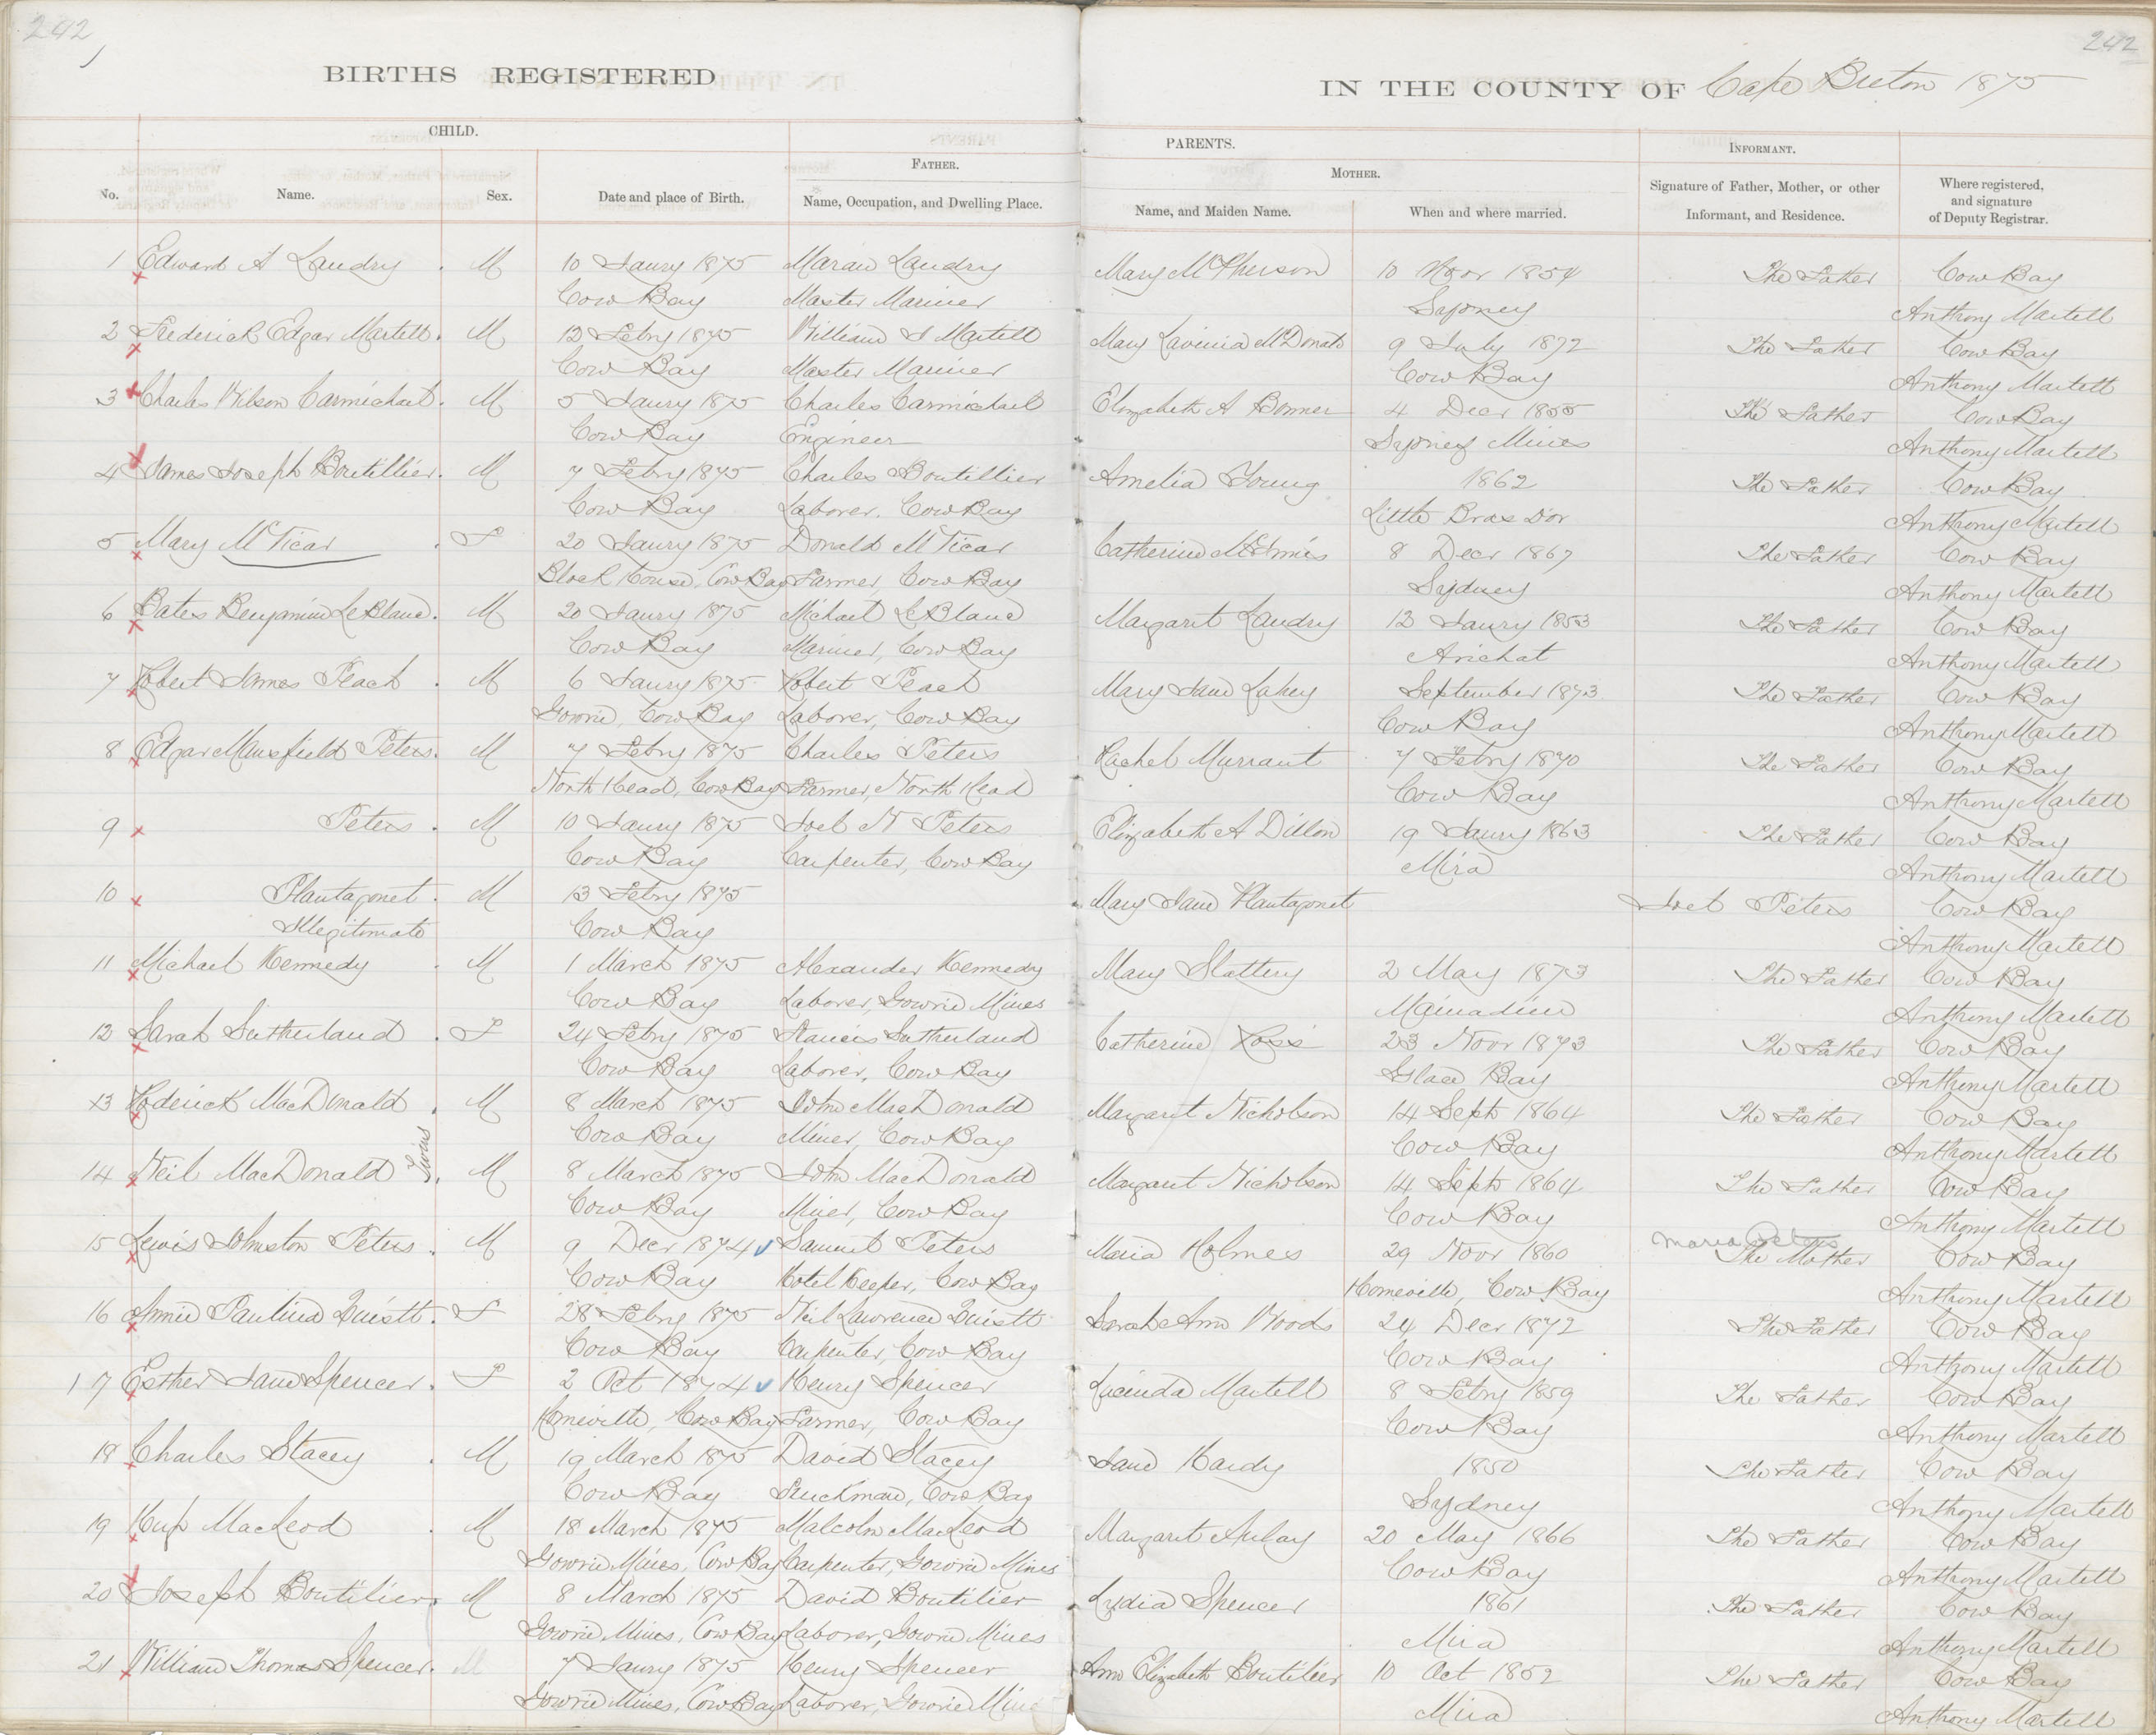 242
242
BIRTHS REGISTERED
IN THE COUNTY OF Cape Breton 1875
CHILD.
PARENTS.
INFORMANT.
FATHER.
MOTHER.
No.
Name.
Sex.
Date and place of Birth.
Name, Occupation, and Dwelling Place.
Name, and Maiden Name.
When and where married.
Signature of Father, Mother, or other
Informant, and Residence.
Where registered,
and signature
of Deputy Registrar.
1 Edward A Landry . M 10 Jaury 1875 Landry Mary McPherson 10 Novr 1854 The Father Cow Bay
Cow Bay Master Mariner Sydney Anthony Martell
2 Frederick Edgar Martell . M 12 Febry 1875 William Martell Mary Lavinia McDonald 9 July 1872 The Father Cow Bay
Cow Bay Master Mariner Cow Bay Anthony Martell
3 Charles Wilson Carmichael . M 5 Jaury 1875 Charles Carmichael Elizabeth A Bonner 4 Decr 1855 The Father Cow Bay
Cow Bay Engineer Sydney Mines Anthony Martell
4 James Joseph Boutillier . M 7 Febry 1875 Charles Boutillier Amelia Young 1862 The Father Cow Bay
Cow Bay Laborer, Cow Bay Little Bras Dor Anthony Martell
5 Mary McVicar . F 20 Jaury 1875 Donald McVicar Catherine 8 Decr 1867 The Father Cow Bay
Block House, Cow Bay Farmer, Cow Bay Sydney Anthony Martell
6 Bates Benjamin LeBlanc . M 20 Jaury 1875 Michael LeBlanc Margaret Landry 12 Jaury 1853 The Father Cow Bay
Cow Bay Mariner, Cow Bay Arichat Anthony Martell
7 Robert James Peach . M 6 Jaury 1875 Robert Peach Mary Jane Lahey September 1873 The Father Cow Bay
Gowrie, Cow Bay Laborer, Cow Bay Cow Bay Anthony Martell
8 Edgar Mansfield Peters . M 7 Febry 1875 Charles Peters Rachel Murrant 7 Febry 1870 The Father Cow Bay
North Head, Cow Bay Farmer, North Head Cow Bay Anthony Martell
9 Peters . M 10 Jaury 1875 Joel N Peters Elizabeth A Dillon 19 Jaury 1863 The Father Cow Bay
Cow Bay Carpenter, Cow Bay Mira Anthony Martell
10 Plantagonet . M 13 Febry 1875 Mary Jane Plantagonet Joel Peters Cow Bay
Illegitimate Cow Bay Anthony Martell
11 Michael Kennedy . M 1 March 1875 Alexander Kennedy Mary Slattery 2 May 1873 The Father Cow Bay
Cow Bay Laborer, Gowrie Mines Mainadieu Anthony Martell
12 Sarah Sutherland . F 24 Febry 1875 Francis Sutherland Catherine Ross 23 Novr 1873 The Father Cow Bay
Cow Bay Laborer, Cow Bay Glace Bay Anthony Martell
13 Roderick MacDonald . M 8 March 1875 John MacDonald Margaret Nicholson 14 Sept 1864 The Father Cow Bay
Twins
Cow Bay Miner, Cow Bay Cow Bay Anthony Martell
14 Neil MacDonald . M 8 March 1875 John MacDonald Margaret Nicholson 14 Sept 1864 The Father Cow Bay
Cow Bay Miner, Cow Bay Cow Bay Anthony Martell
Maria Peters
15 Lewis Johnston Peters . M 9 Decr 1874 Samuel Peters Maria Holmes 29 Novr 1860 The Mother Cow Bay
Cow Bay Hotel Keeper, Cow Bay Homeville, Cow Bay Anthony Martell
16 Annie Paulina . F 28 Febry 1875 Neil Lawrence Sarah Ann Woods 24 Decr 1872 The Father Cow Bay
Cow Bay Carpenter, Cow Bay Cow Bay Anthony Martell
17 Esther Jane Spencer . F 2 Oct 1874 Henry Spencer Lucinda Martell 8 Febry 1859 The Father Cow Bay
Homeville, Cow Bay Farmer, Cow Bay Cow Bay Anthony Martell
18 Charles Stacey . M 19 March 1875 David Stacey Jane Hardy 1850 The Father Cow Bay
Cow Bay Truckman, Cow Bay Sydney Anthony Martell
19 MacLeod . M 18 March 1875 Malcolm MacLeod Margaret Aulay 20 May 1866 The Father Cow Bay
Gowrie Mines, Cow Bay Carpenter, Gowrie Mines Cow Bay Anthony Martell
20 Joseph Boutilier . M 8 March 1875 David Boutilier Lydia Spencer 1861 The Father Cow Bay
Gowrie Mines, Cow Bay Laborer, Gowrie Mines Mira Anthony Martell
21 William Thomas Spencer . M 7 Jaury 1875 Henry Spencer Ann Elizabeth Boutilier 10 Oct 1852 The Father Cow Bay
Gowrie Mines, Cow Bay Laborer, Gowrie Mine Mira Anthony Martell